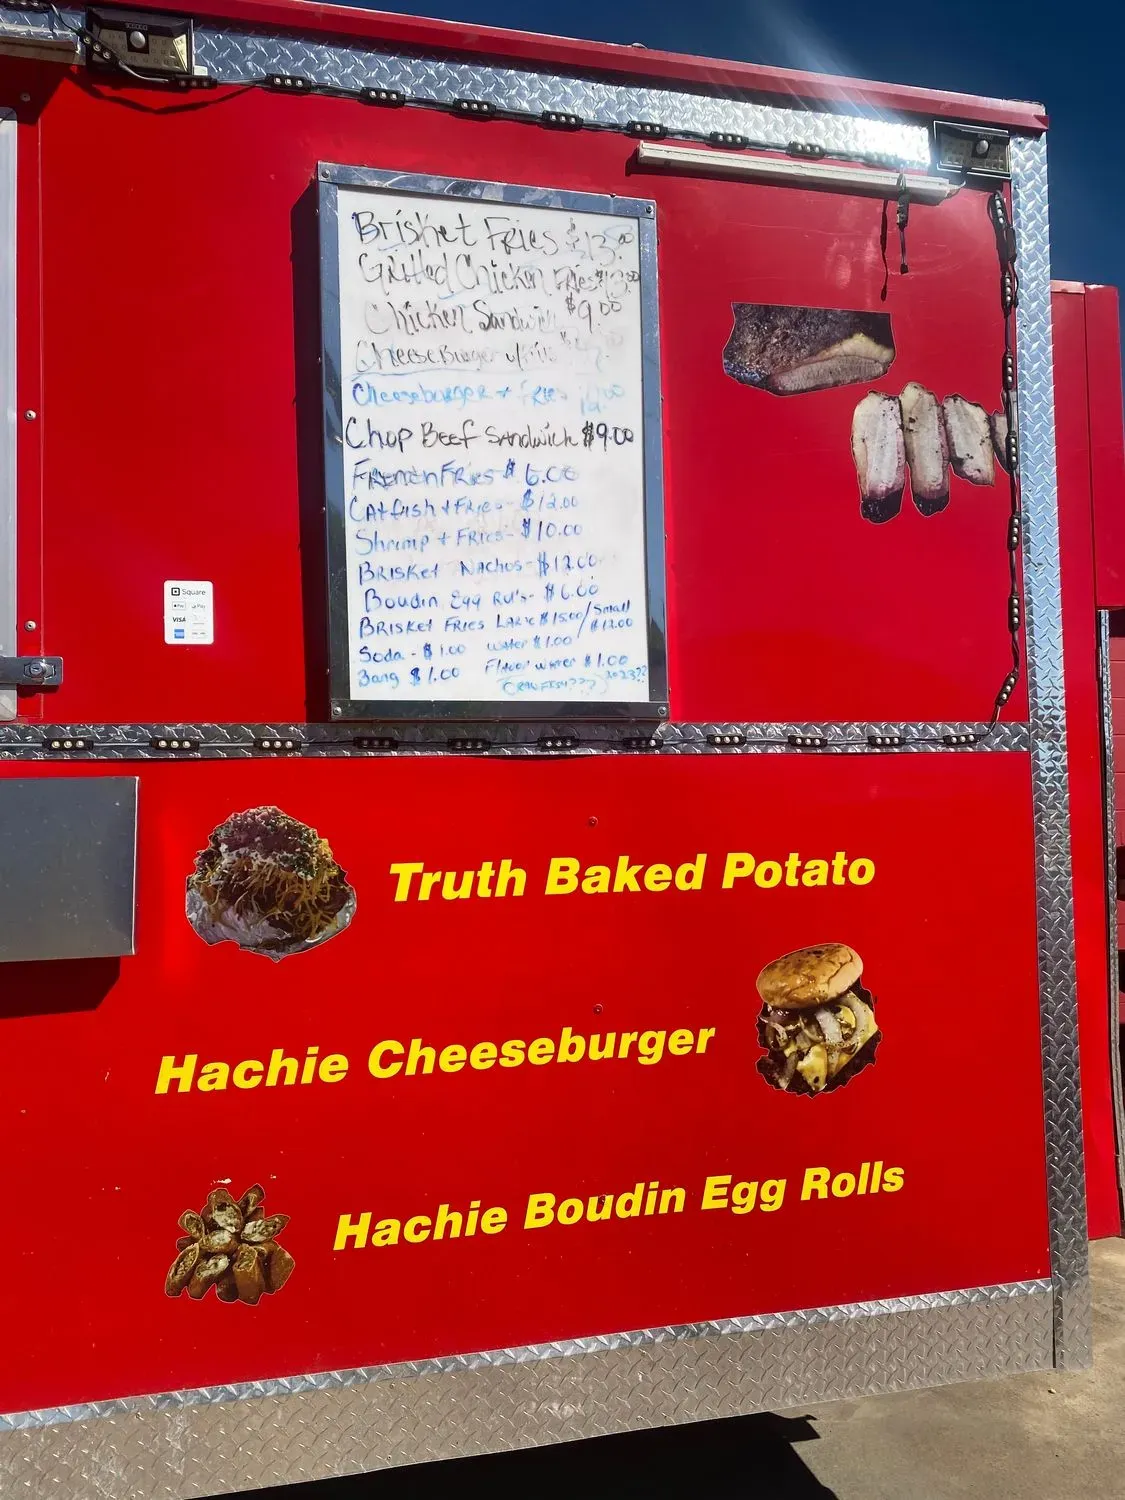 Brisket Fries $13.00
Grilled Chicken Fries $13.00
Chicken Sandwich $9.00
CheeseBurger w/
Cheeseburger + Fries
Chop Beef Sandwich $9.00
French Fries $6.00
Catfish + Fries - $12.00
Shrimp + Fries - $10.00
Brisket Nachos - $12.00
Boudin Egg Rol's - $6.00
Brisket Fries Large $15.00/Small $12.00
Soda - $1.00 Water $1.00
Bang $1.00 Flavor Water $1.00
CRAWFISH??? 2023??
Square
Pay Pay
VISA
Truth Baked Potato
Hachie Cheeseburger
Hachie Boudin Egg Rolls